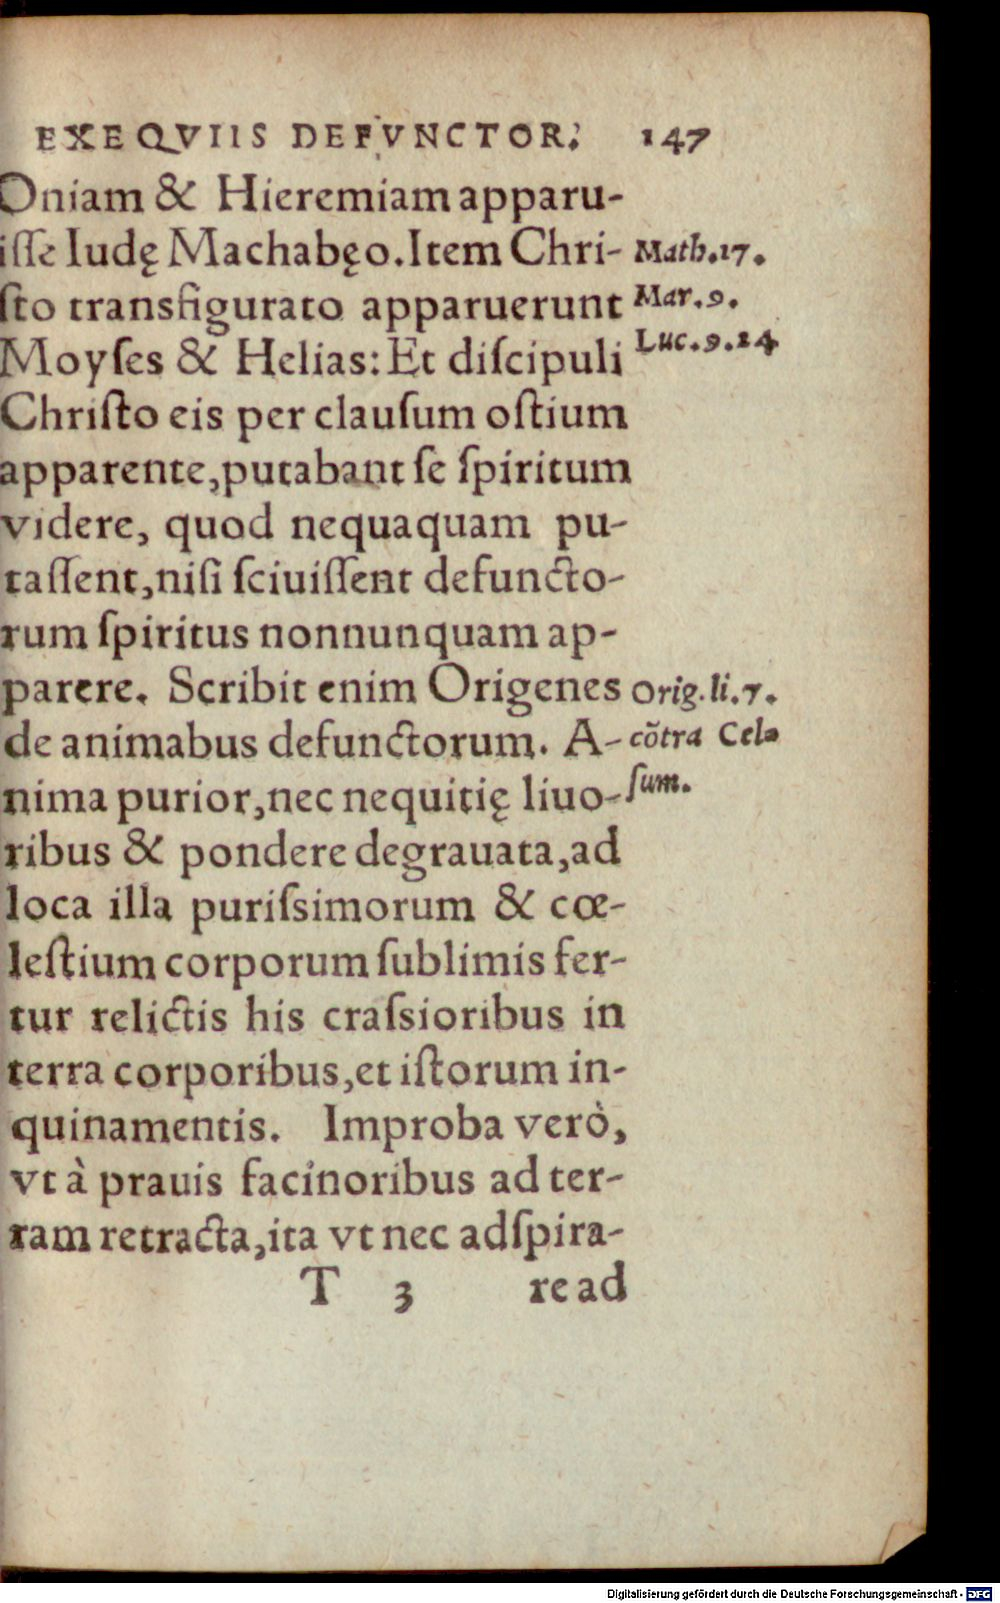 EXEQVIIS DEFVNCTOR. 147
Oniam & Hieremiam apparu-
iſſe Iudę Machabęo. Item Chri-
Math.17.
ſto transfigurato apparuerunt
Mar.9.
Moyſes & Helias: Et diſcipuli
Luc.9.24
Chriſto eis per clauſum oſtium
apparente, putabant ſe ſpiritum
videre, quod nequaquam pu-
taſſent, niſi ſciuiſſent defuncto-
rum ſpiritus nonnunquam ap-
parere. Scribit enim Origenes
Orig. li.7.
de animabus defunctorum. A-
cõtra Cel-
nima purior, nec nequitię liuo-
ſum.
ribus & pondere degrauata, ad
loca illa puriſsimorum & cœ-
leſtium corporum ſublimis fer-
tur relictis his craſsioribus in
terra corporibus, et iſtorum in-
quinamentis. Improba verò,
vt à prauis facinoribus ad ter-
ram retracta, ita vt nec adſpira-
T 3 re ad
Digitalisierung gefördert durch die Deutsche Forschungsgemeinschaft - DFG